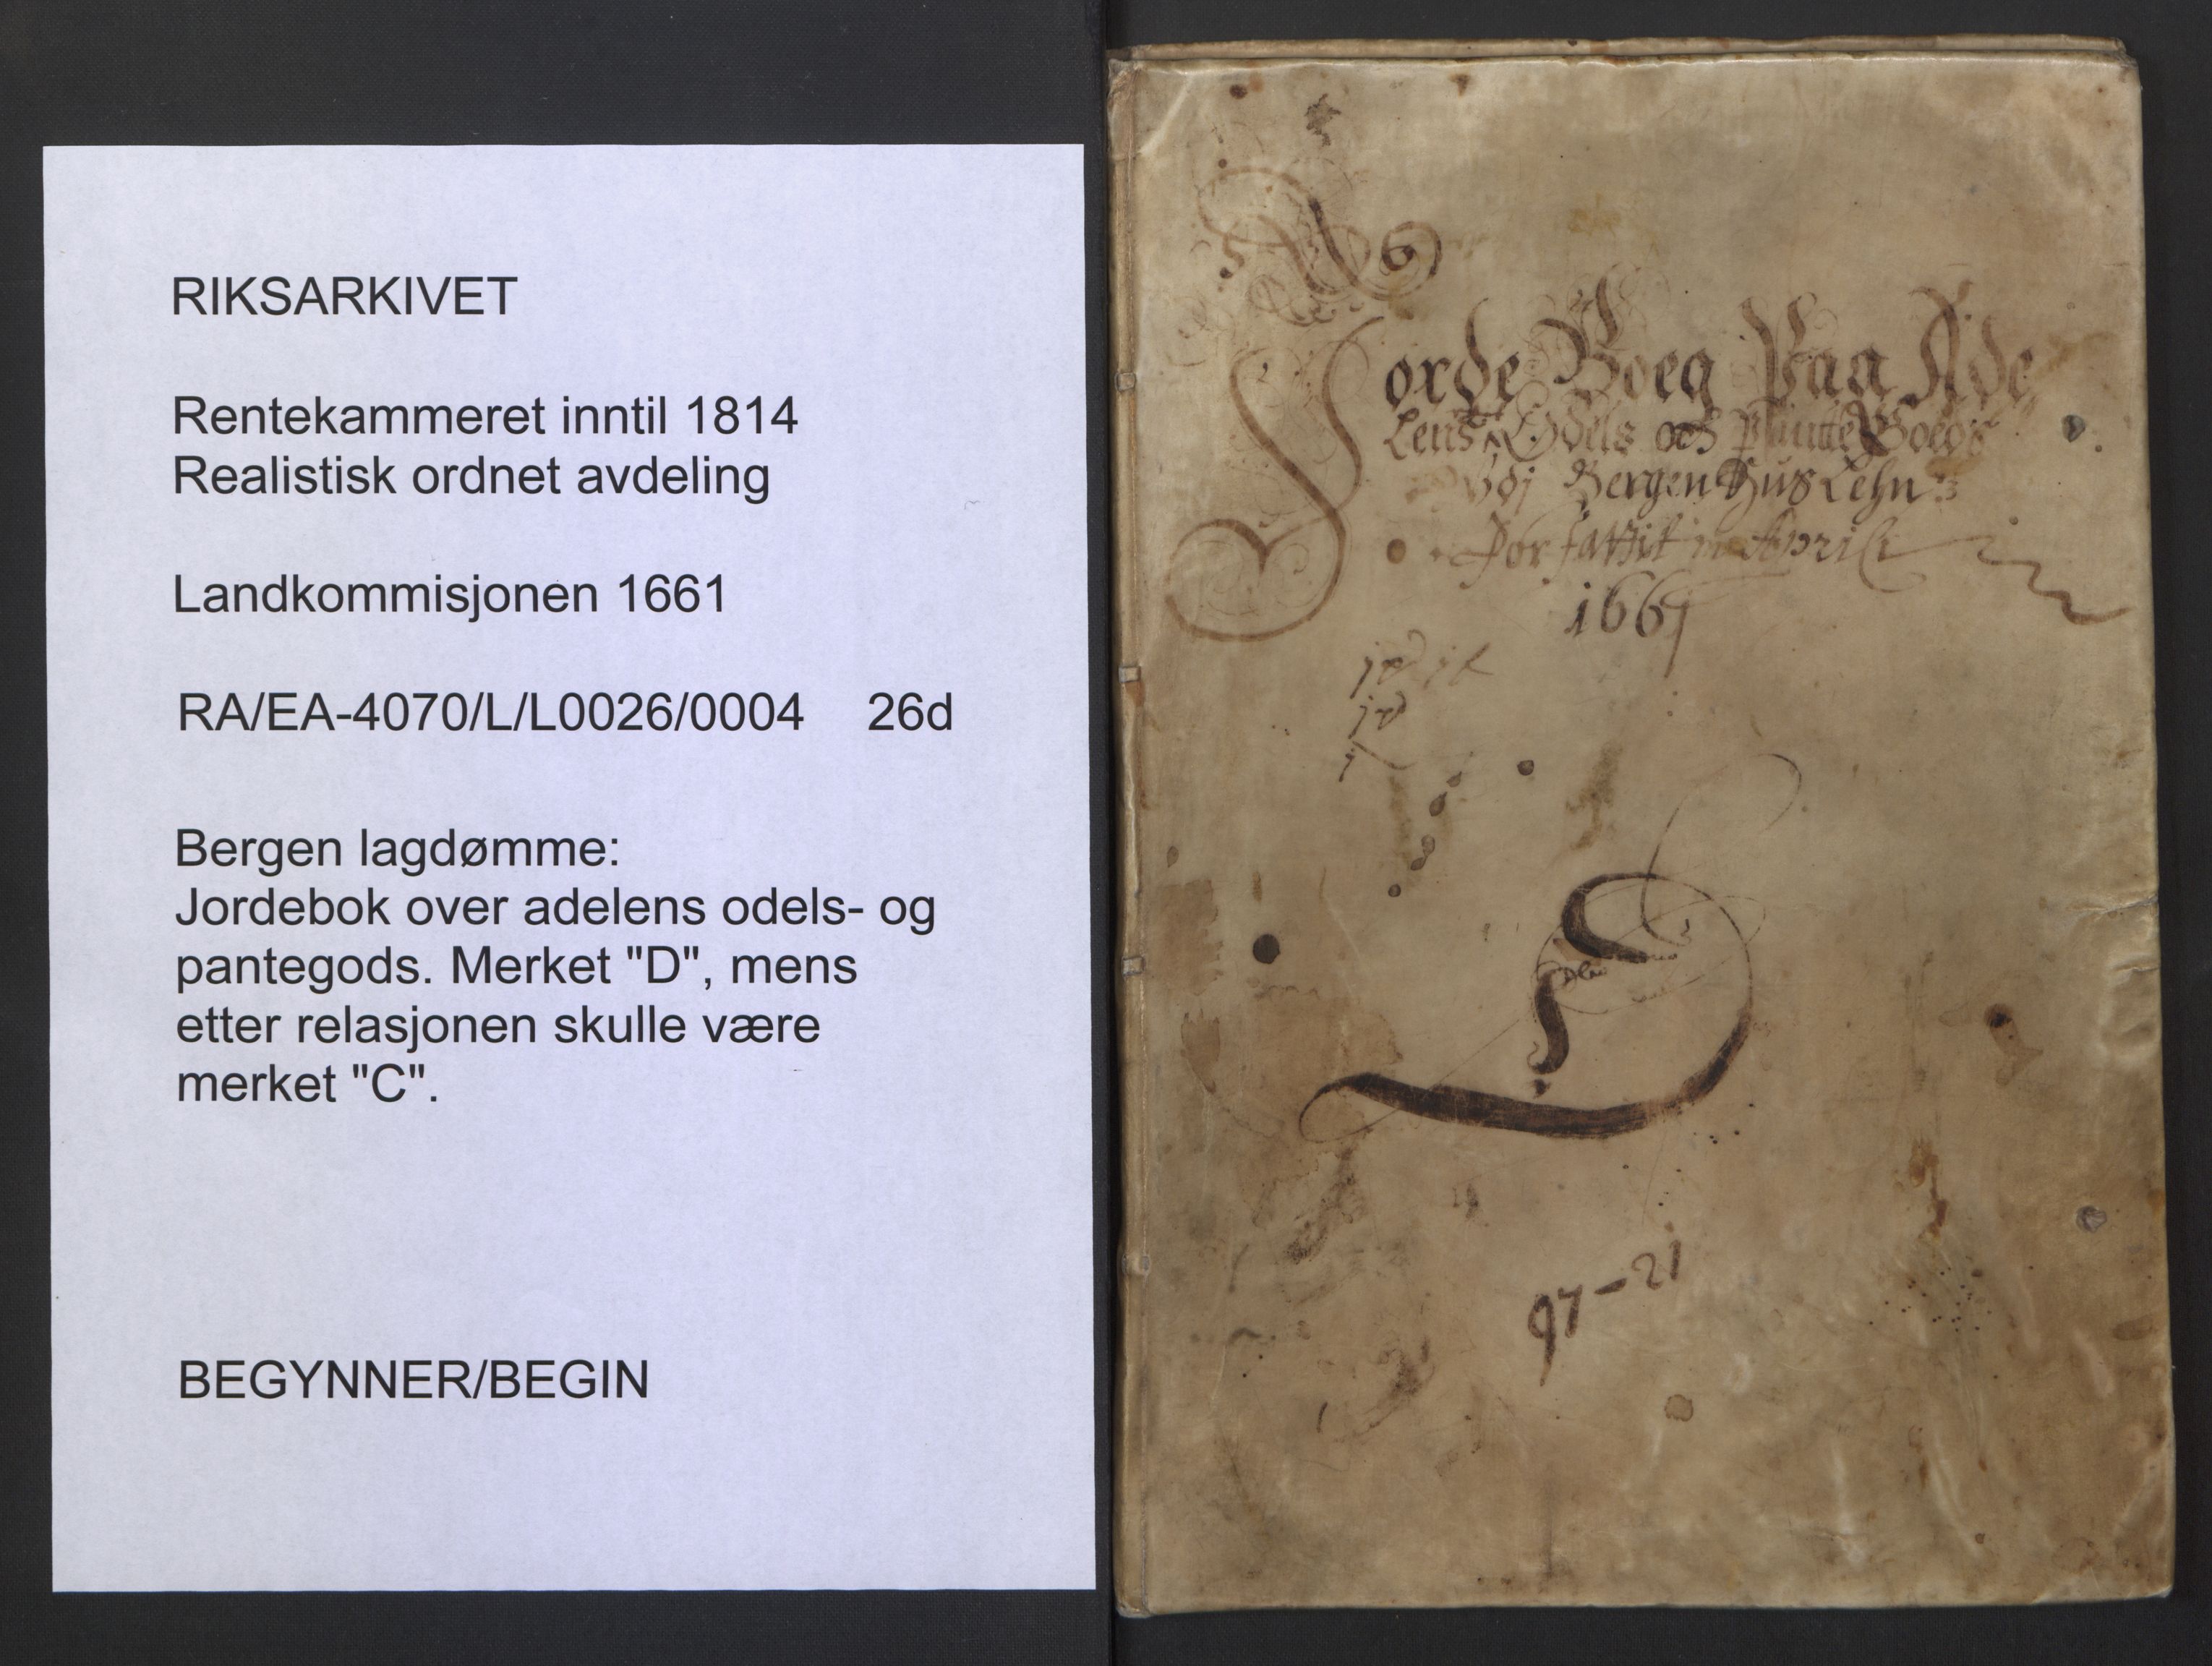 RIKSARKIVET
Rentekammeret inntil 1814
Realistisk ordnet avdeling
Landkommisjonen 1661
RA/EA-4070/L/L0026/0004 26d
Bergen lagdømme:
Jordebok over adelens odels- og
pantegods. Merket "D", mens
etter relasjonen skulle være
merket "C".
BEGYNNER/BEGIN
Jorde Boeg Paa Ade
Lens Odels och
Bergenhus Lehn
Forfattit in Aprili
1661
D
97-21